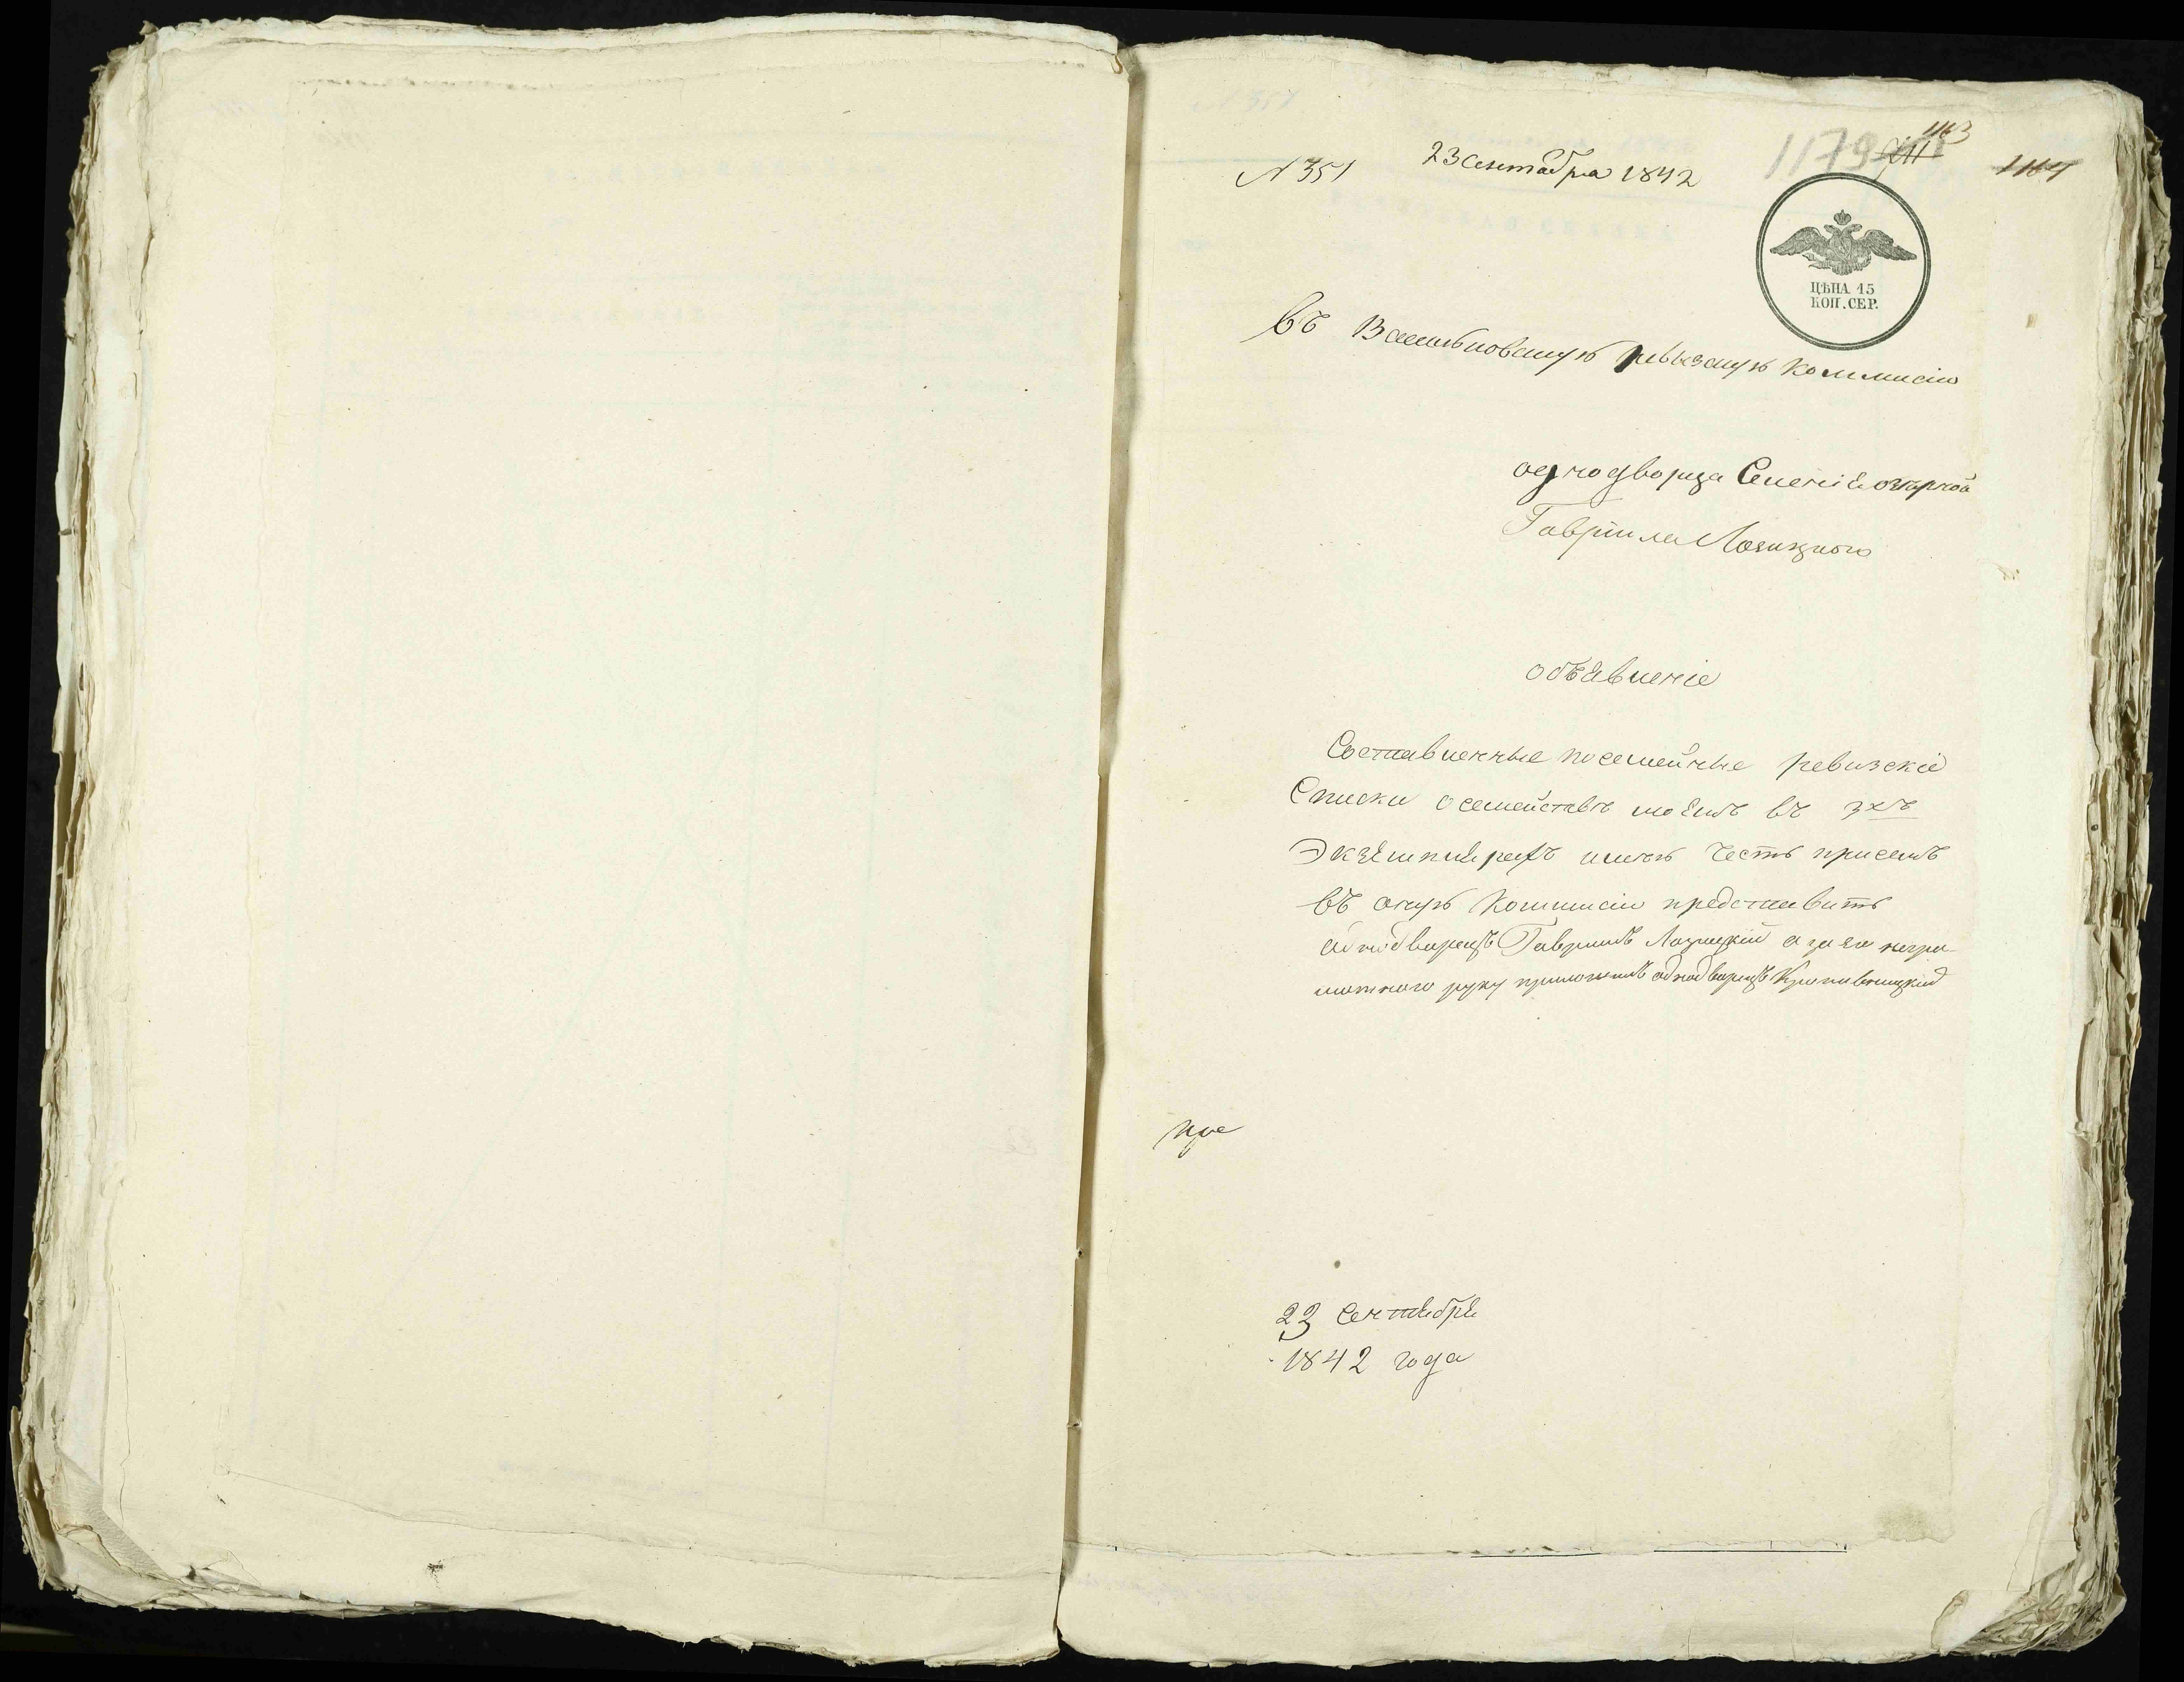 N 351 23 сентября 1842 1179 1163
1164
ЦѢНА 15
КОП. СЕР.
въ Васильковскую ревизскую Коммисію
однодворца
Гаврила Лозицкого
объявленіе
Составленные посемейные ревизскіе
Списки о семействѣ моемъ въ 3хъ
Экземплярахъ имею честь присемъ
въ оную Коммисію представить
однодворецъ Гаврилъ Лозицкій а за его негра-
мотного руку приложилъ однодворецъ Кропивницкий
23 Сентября
1842 года